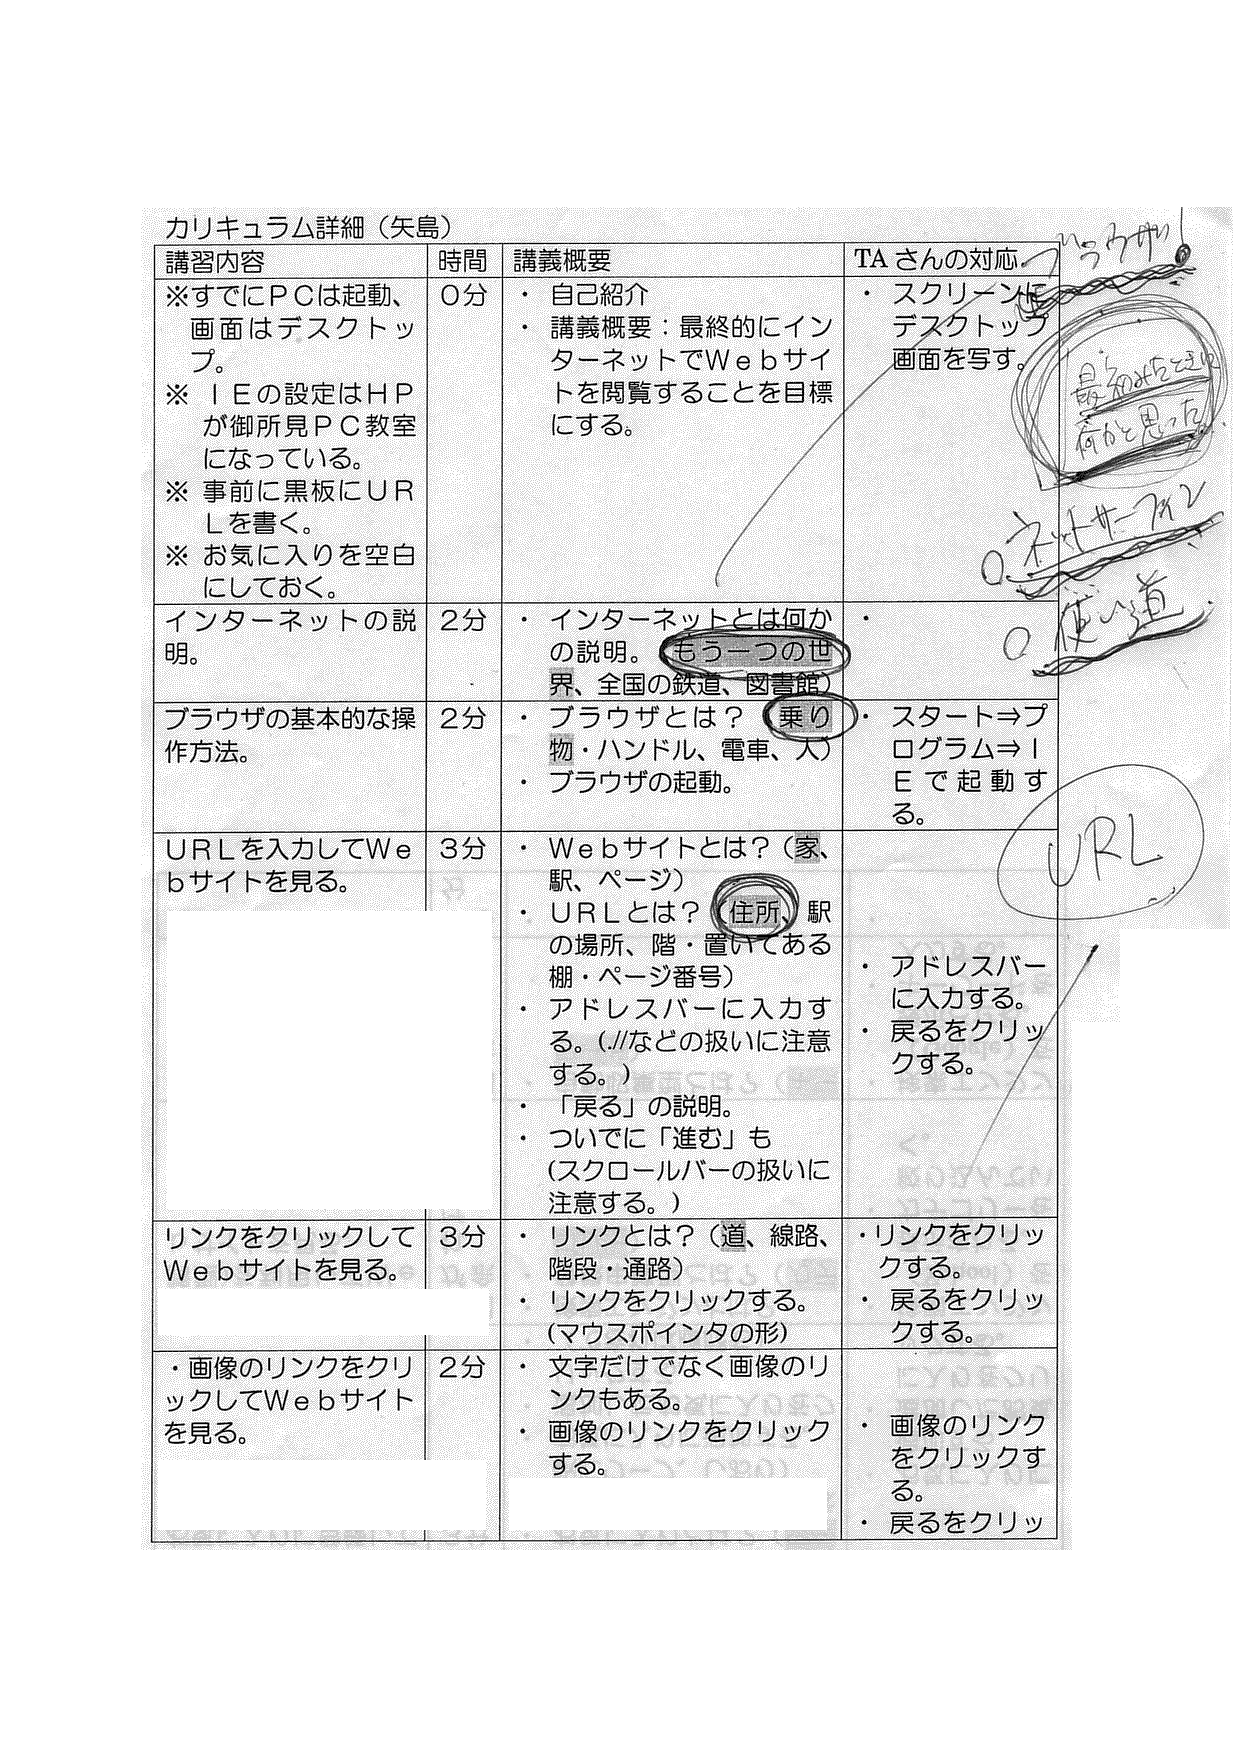 カリキュラム詳細（矢島）
講習内容
時間
講義概要
TAさんの対応
※すでにＰＣは起動、
画面はデスクトッ
プ。
※ ＩＥの設定はＨＰ
が御所見ＰＣ教室
になっている。
※ 事前に黒板にＵＲ
Ｌを書く。
※ お気に入りを空白
にしておく。
０分
・ 自己紹介
・ 講義概要：最終的にイン
ターネットでＷｅｂサイ
トを閲覧することを目標
にする。
・ スクリーンに
デスクトップ
画面を写す。
インターネットの説
明。
２分
・ インターネットとは何か
の説明。（もう一つの世
界、全国の鉄道、図書館）
・
ブラウザの基本的な操
作方法。
２分
・ ブラウザとは？（乗り
物・ハンドル、電車、人）
・ ブラウザの起動。
・ スタート⇒プ
ログラム⇒Ｉ
Ｅで起動す
る。
ＵＲＬを入力してＷｅ
ｂサイトを見る。
３分
・ Ｗｅｂサイトとは？（家、
駅、ページ）
・ ＵＲＬとは？（住所、駅
の場所、階・置いてある
棚・ページ番号）
・ アドレスバーに入力す
る。（.//などの扱いに注意
する。）
・ 「戻る」の説明。
・ ついでに「進む」も
(スクロールバーの扱いに
注意する。)
・ アドレスバー
に入力する。
・ 戻るをクリッ
クする。
リンクをクリックして
Ｗｅｂサイトを見る。
３分
・ リンクとは？（道、線路、
階段・通路）
・ リンクをクリックする。
(マウスポインタの形)
・リンクをクリッ
クする。
・ 戻るをクリッ
クする。
・画像のリンクをクリ
ックしてＷｅｂサイト
を見る。
２分
・ 文字だけでなく画像のリ
ンクもある。
・ 画像のリンクをクリック
する。
・ 画像のリンク
をクリックす
る。
・ 戻るをクリッ
ブラウザ！
最初みたときに
何かと思った
ネットサーフィン
使い道
URL